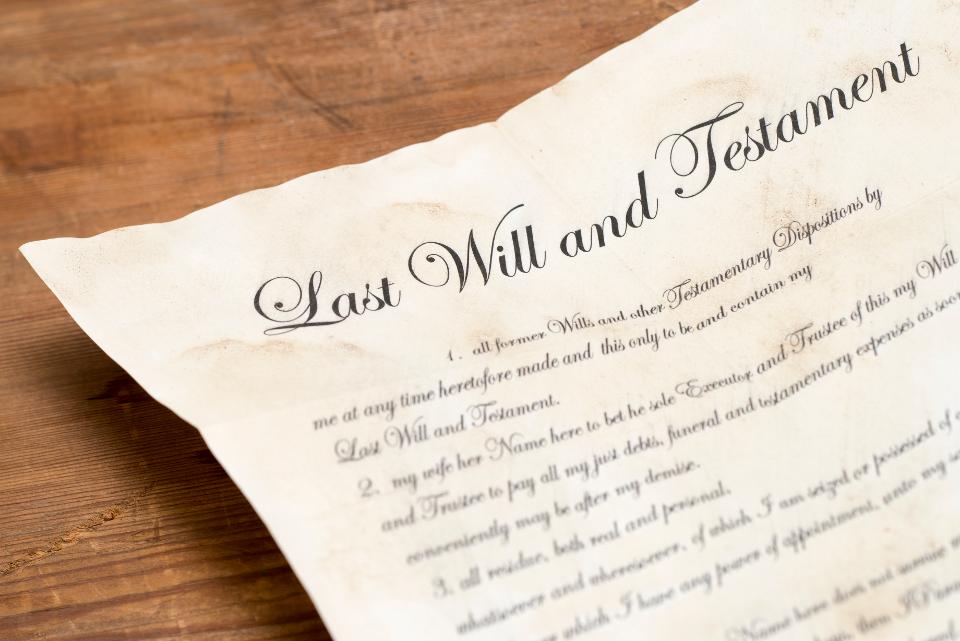 Last Will and Testament
1. all former Wills and other Testamentary Dispositions by
me at any time heretofore made and this only to be and contain my
Last Will and Testament.
2. my wife her Name here to bet he sole Executor and Trustee of this my Will
and Trustee to pay all my just debts, funeral and testamentary expenses as soon
conveniently may be after my demise.
3. all residue, both real and personal,
whatsoever and wheresoever, of which I am seized or possessed of
which I have any power of appointment, unto my
Name here does not survive
then